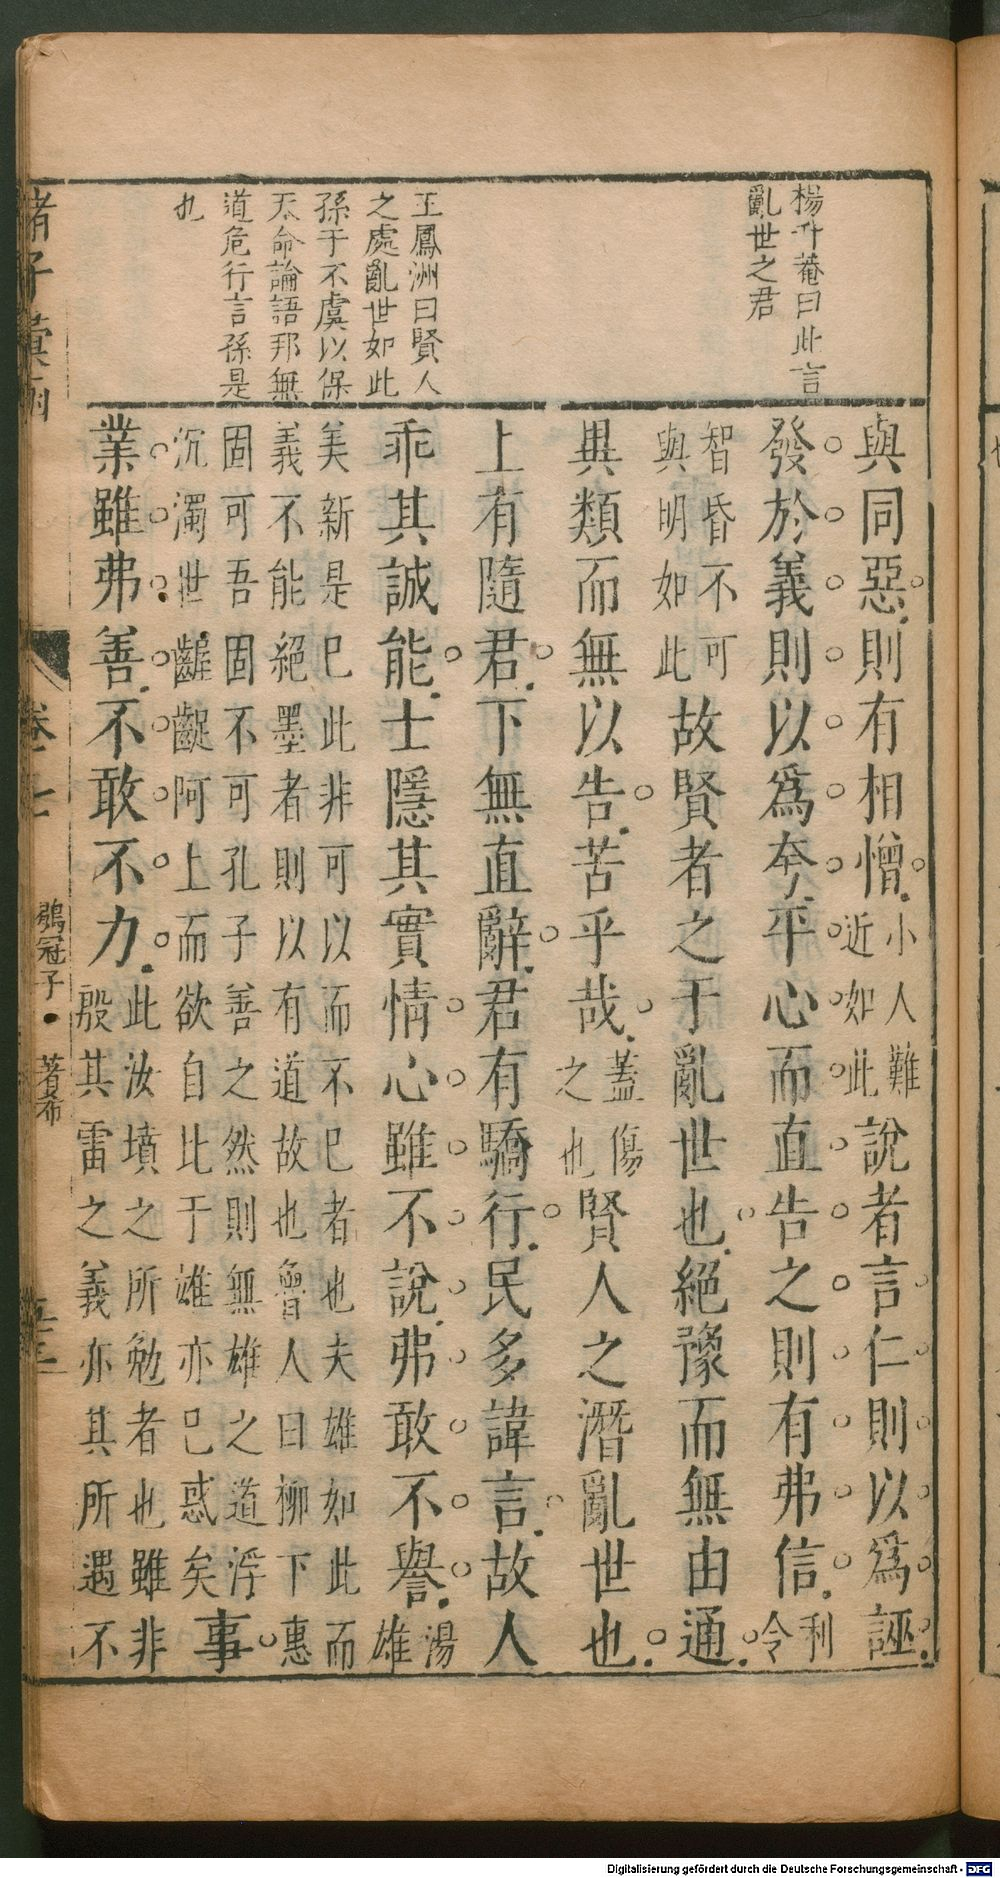 楊升菴曰此言
亂世之君
王鳳洲曰賢人
之處亂世如此
孫于不虞以保
天命論語邦無
道危行言孫是
也
與同惡則有相憎小人難近如此說者言仁則以爲誣
發於義則以爲夸平心而直告之則有弗信利令
智昏不可與明如此故賢者之于亂世也絕豫而無由通
異類而無以告苦乎哉蓋傷之也賢人之潛亂世也
上有隨君下無直辭君有驕行民多諱言故人
乖其誠能士隱其實情心雖不說弗敢不譽湯雄
美新是已此非可以而不已者也夫雄如此而
義不能絕墨者則以有道故也魯人曰柳下惠
固可吾固不可孔子善之然則無雄之道浮
沉濁世齷齪阿上而欲自比于雄亦已惑矣事
業雖弗善不敢不力此汝墳之所勉者也雖非
殷其雷之義亦其所遇不
諸子彙函 卷七 鶡冠子 著希
Digitalisierung gefördert durch die Deutsche Forschungsgemeinschaft - DFG